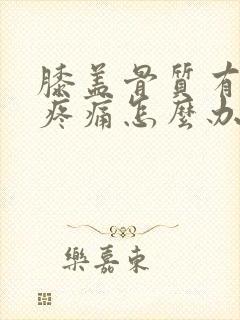 膝盖骨質有
疼痛怎麼办
樂嘉東